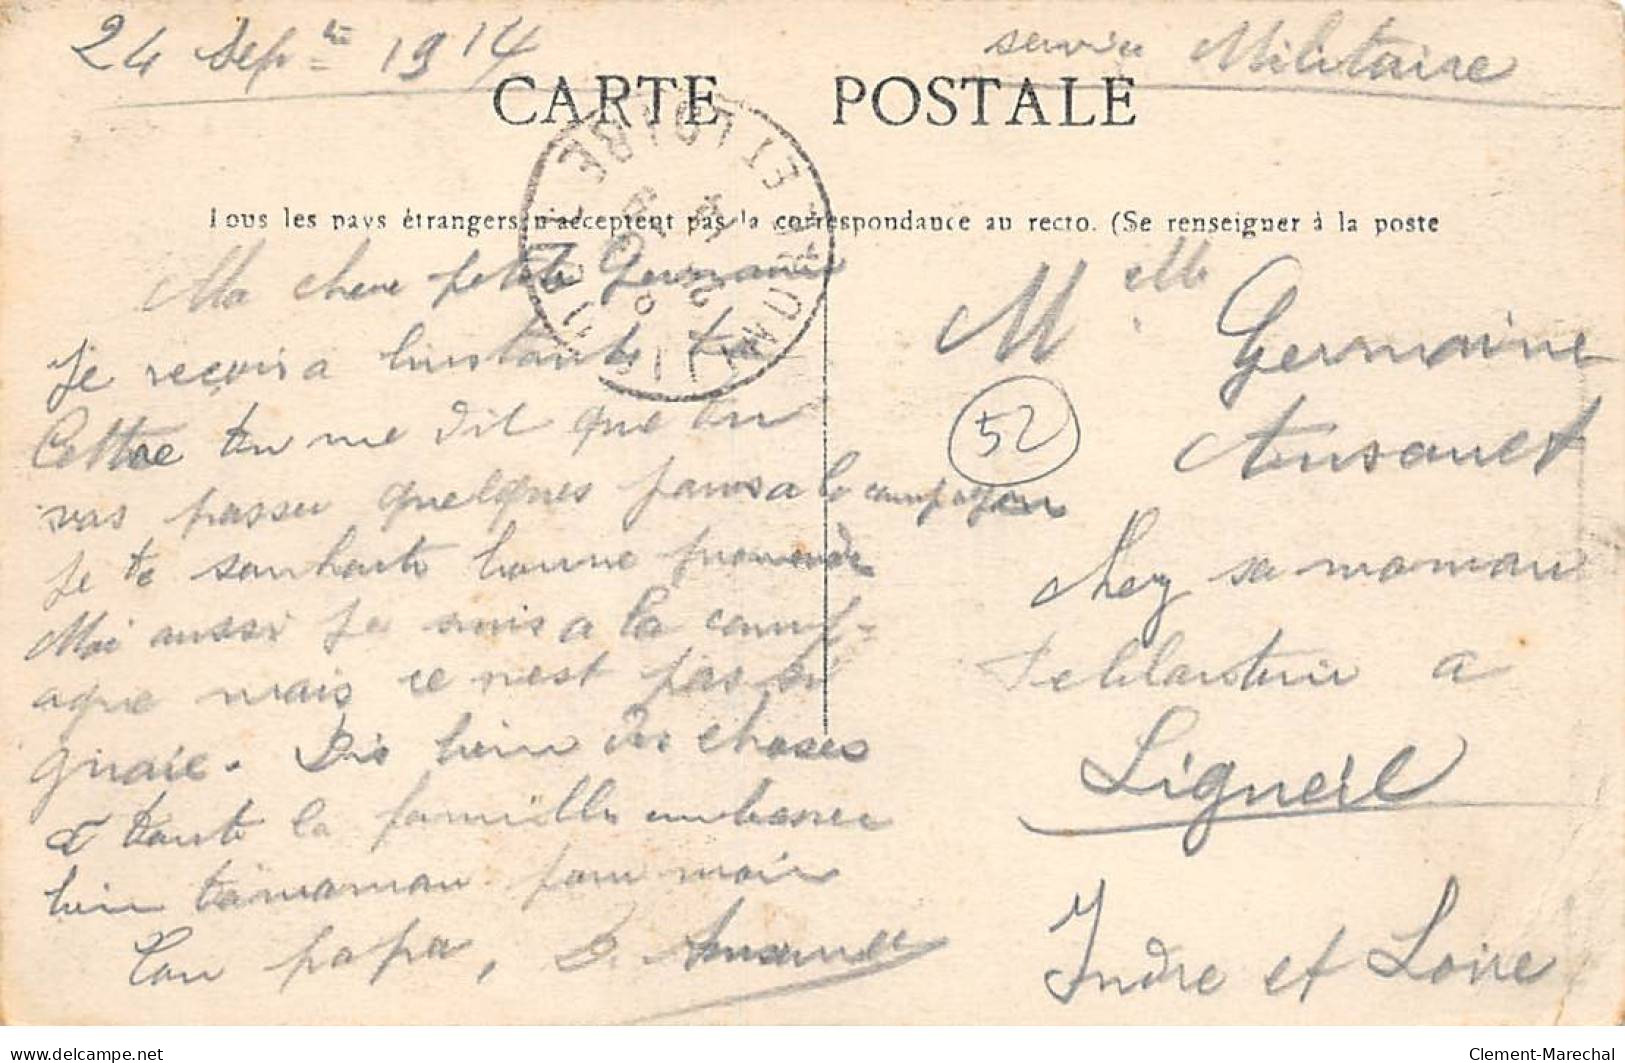 24 Sepbre 1914
service Militaire
CARTE POSTALE
Tous les pays étrangers n'acceptent pas la correspondance au recto. (Se renseigner à la poste
Ma chere petite Germaine
Je reçois a linstant ta
Lettre tu me dit que tu
vas passer quelques jours a la campagne
Je te souhaite bonne promenade
Moi aussi je suis a la camp-
agne mais ce nest pas si
gnaie. Dis bien des choses
a toute la famille embrasser
bien ta maman pour moi
Ton papa,
Mlle
Germaine
52
chez sa maman
a
Ligneil
Indre et Loire
INDRE ET LOIRE
delcampe.net
Clement-Marechal